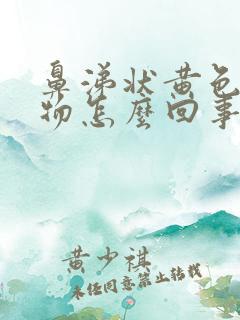 鼻涕状黄色
物怎麼回事
黄少祺
未经同意禁止转载